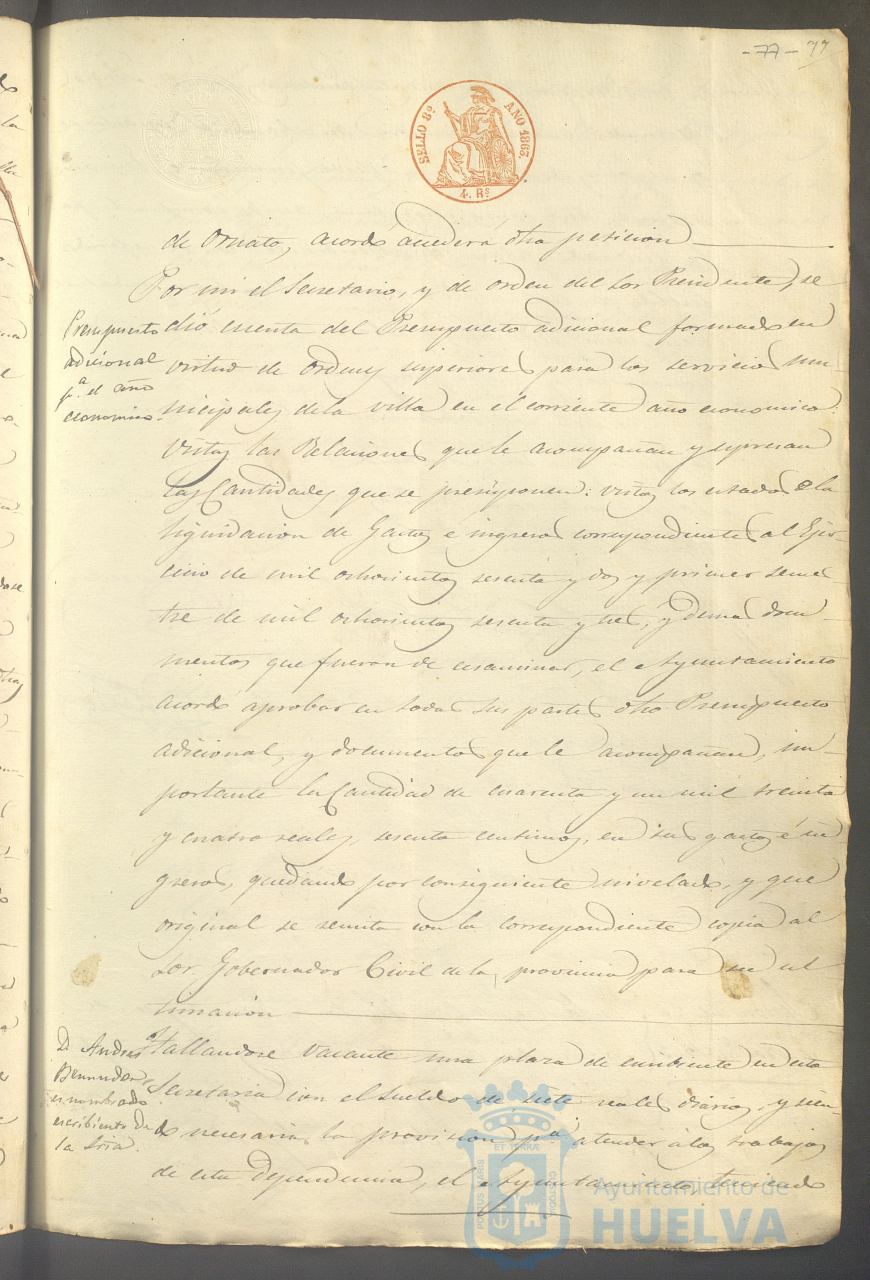 - 77 - 77
SELLO 8º AÑO 1863.
4. Rˢ
de Ornato, acordó acceder á dha peticion
Por mi el Secretario, y de orden del Sor Presidente, se
Presupuesto
adicional
pª el año
economico.
dió cuenta del Presupuesto adicional formado en
virtud de ordenes superiores para los servicios mu-
nicipales de la villa en el corriente año economico:
vistas las Relaciones que le acompañan y espresan
las Cantidades que se presuponen: vistos los estados de la
liquidacion de Gastos é ingresos correspondientes al Ejer-
cicio de mil ochocientos sesenta y dos y primer semes-
tre de mil ochocientos sesenta y tres, y demas docu-
mentos que fueron de ecsaminar, el Ayuntamiento
acordó aprobar en todas sus partes dho Presupuesto
adicional, y documentos que le acompañan, im-
portante la Cantidad de cuarenta y un mil treinta
y cuatro reales, sesenta centimos, en sus gastos é in
gresos, quedando por consiguiente nivelado, y que
original se remita con la correspondiente copia al
Sor Gobernador Civil de la provincia para su ul
timacion
D Andres
Bermudez,
es nombrado
escribiente de
la Sria.
Hallandose vacante una plaza de escribiente en esta
Secretaria con el sueldo de siete reales diarios, y sien
do necesaria la provision pª atender á los trabajos
de esta Dependencia, el Ayuntamiento, teniendo
ET TERRÆ
PORTUS MARIS
CUSTODIA
Ayuntamiento de
HUELVA